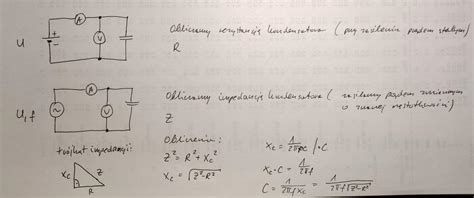 U
A
V
Obliczamy rezystancję kondensatora ( przy zasilaniu prądem stałym)
R
U, f
A
V
Obliczamy impedancję kondensatora ( zasilamy prądem zmiennym
o znanej częstotliwości)
Z
trójkąt impedancji:
Xc
Z
R
Obliczenia:
Z² = R² + Xc²
Xc = √(Z²-R²)
Xc = 1/(2πfC) / ·C
Xc · C = 1/(2πf)
C = 1/(2πf Xc) = 1/(2πf√(Z²-R²))